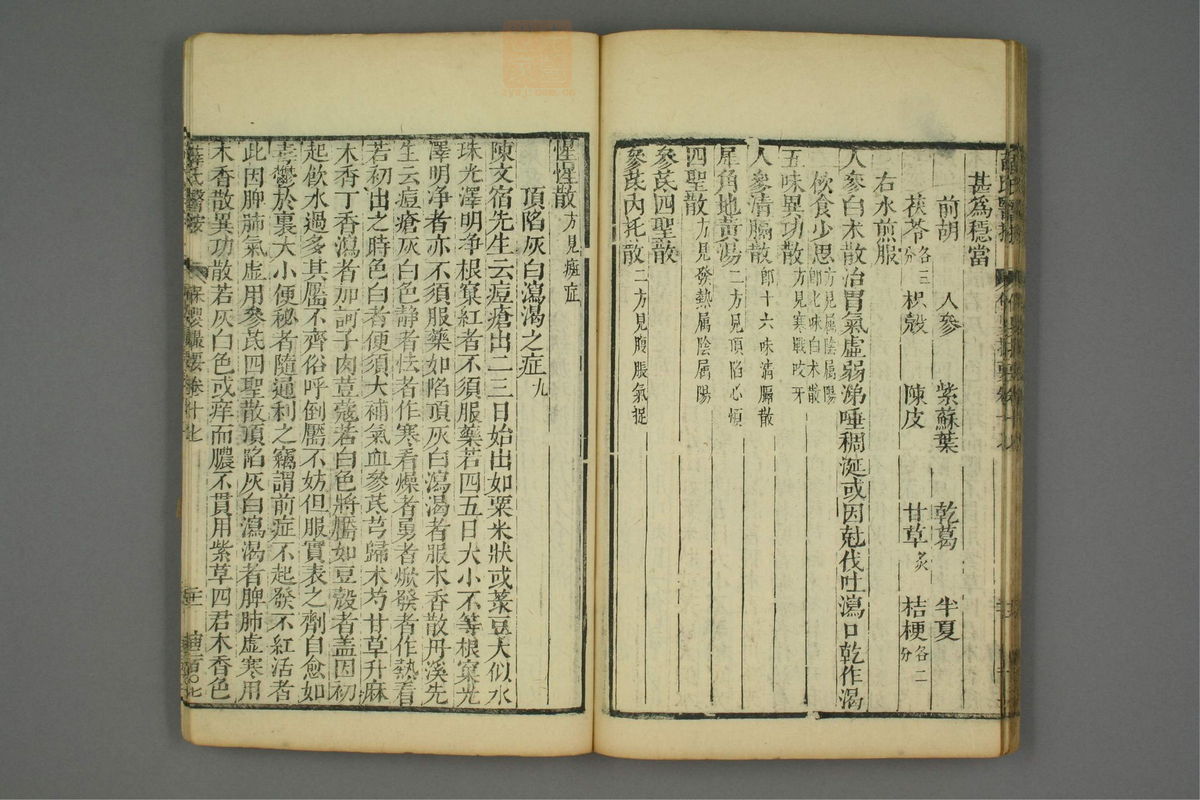 甚為穩當
前胡 人參 紫蘇葉 乾葛 半夏
茯苓各三分 枳殼 陳皮 甘草炙 桔梗各二分
右水煎服
人參白朮散治胃氣虛弱涕唾稠涎或因尅伐吐瀉口乾作渴
飲食少思方見屬陰屬陽即七味白朮散
五味異功散方見寒戰咬牙
人參清膈散即十六味清膈散
犀角地黃湯二方見頂陷心煩
四聖散方見發熱屬陰屬陽
參芪四聖散
參芪內托散二方見腹脹氣促
惺惺散方見癍症
頂陷灰白瀉渴之症九
陳文宿先生云痘瘡出二三日始出如粟米狀或菉豆大似水
珠光澤明净根窠紅者不須服藥若四五日大小不等根窠光
澤明净者亦不須服藥如陷頂灰白瀉渴者服木香散丹溪先
生云痘瘡灰白色静者怯者作寒看燥者勇者焮發者作熱看
若初出之時色白者便須大補氣血參芪芎歸朮芍甘草升麻
木香丁香瀉者加訶子肉荳蔻若白色將靨如豆殼者盖因初
起飲水過多其靨不齊俗呼倒靨不妨但服實表之劑自愈如
毒鬱於裏大小便秘者隨通利之竊謂前症不起發不紅活者
此因脾肺氣虛用參芪四聖散頂陷灰白瀉渴者脾肺虛寒用
木香散異功散若灰白色或痒而膿不貫用紫草四君木香色
薛氏醫按 保嬰撮要卷十七